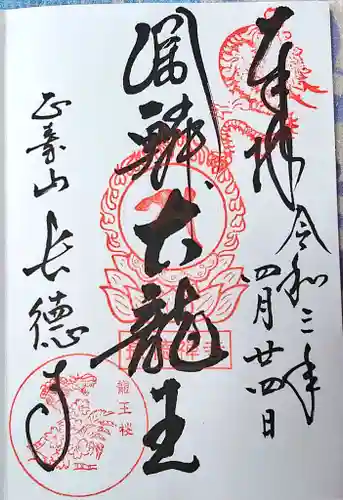 奉拝
令和三年
四月廿四日
鱗大龍王
正壽山
長徳寺
龍王桜